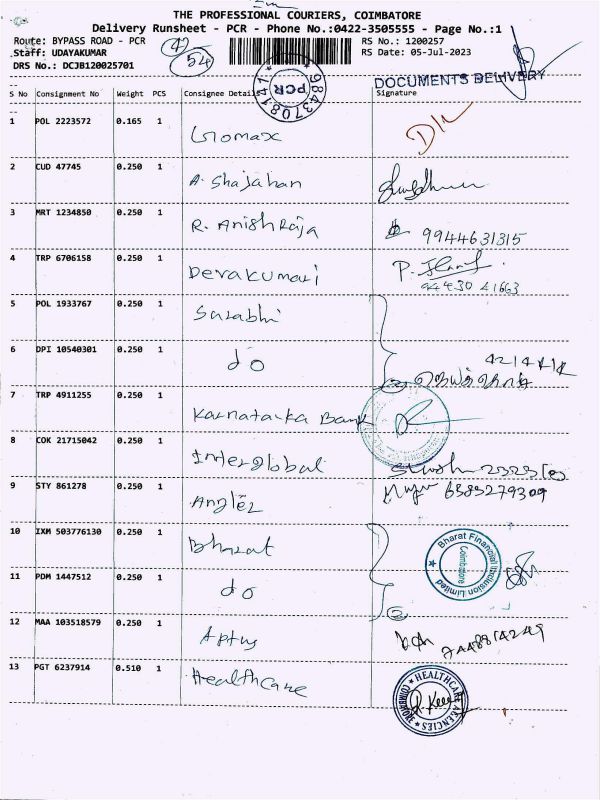 THE PROFESSIONAL COURIERS, COIMBATORE
Delivery Runsheet - PCR - Phone No.:0422-3505555 - Page No.:1
Route: BYPASS ROAD - PCR
Staff: UDAYAKUMAR
DRS No.: DCJB120025701
RS No.: 1200257
RS Date: 05-Jul-2023
54
9843708141 PCR
DOCUMENTS DELIVERY
S No Consignment No Weight PCS Consignee Details Signature
1 POL 2223572 0.165 1 Giomax D/L
2 CUD 47745 0.250 1 A. Shajahan
3 MRT 1234850 0.250 1 R. Anish Raja 9944631315
4 TRP 6706158 0.250 1 Devakumari P.
94430 41663
5 POL 1933767 0.250 1 Surabhi
6 DPI 10540301 0.250 1 do
7 TRP 4911255 0.250 1 Karnataka Bank
8 COK 21715042 0.250 1 Interglobal
9 STY 861278 0.250 1 Anglez 6383279309
10 IXM 503776130 0.250 1 Bharat
Bharat Financial Inclusion Limited Coimbatore
11 PDM 1447512 0.250 1 do
12 MAA 103518579 0.250 1 Aptus
13 PGT 6237914 0.510 1 Healthcare
HEALTHCARE AGENCIES COIMBATORE